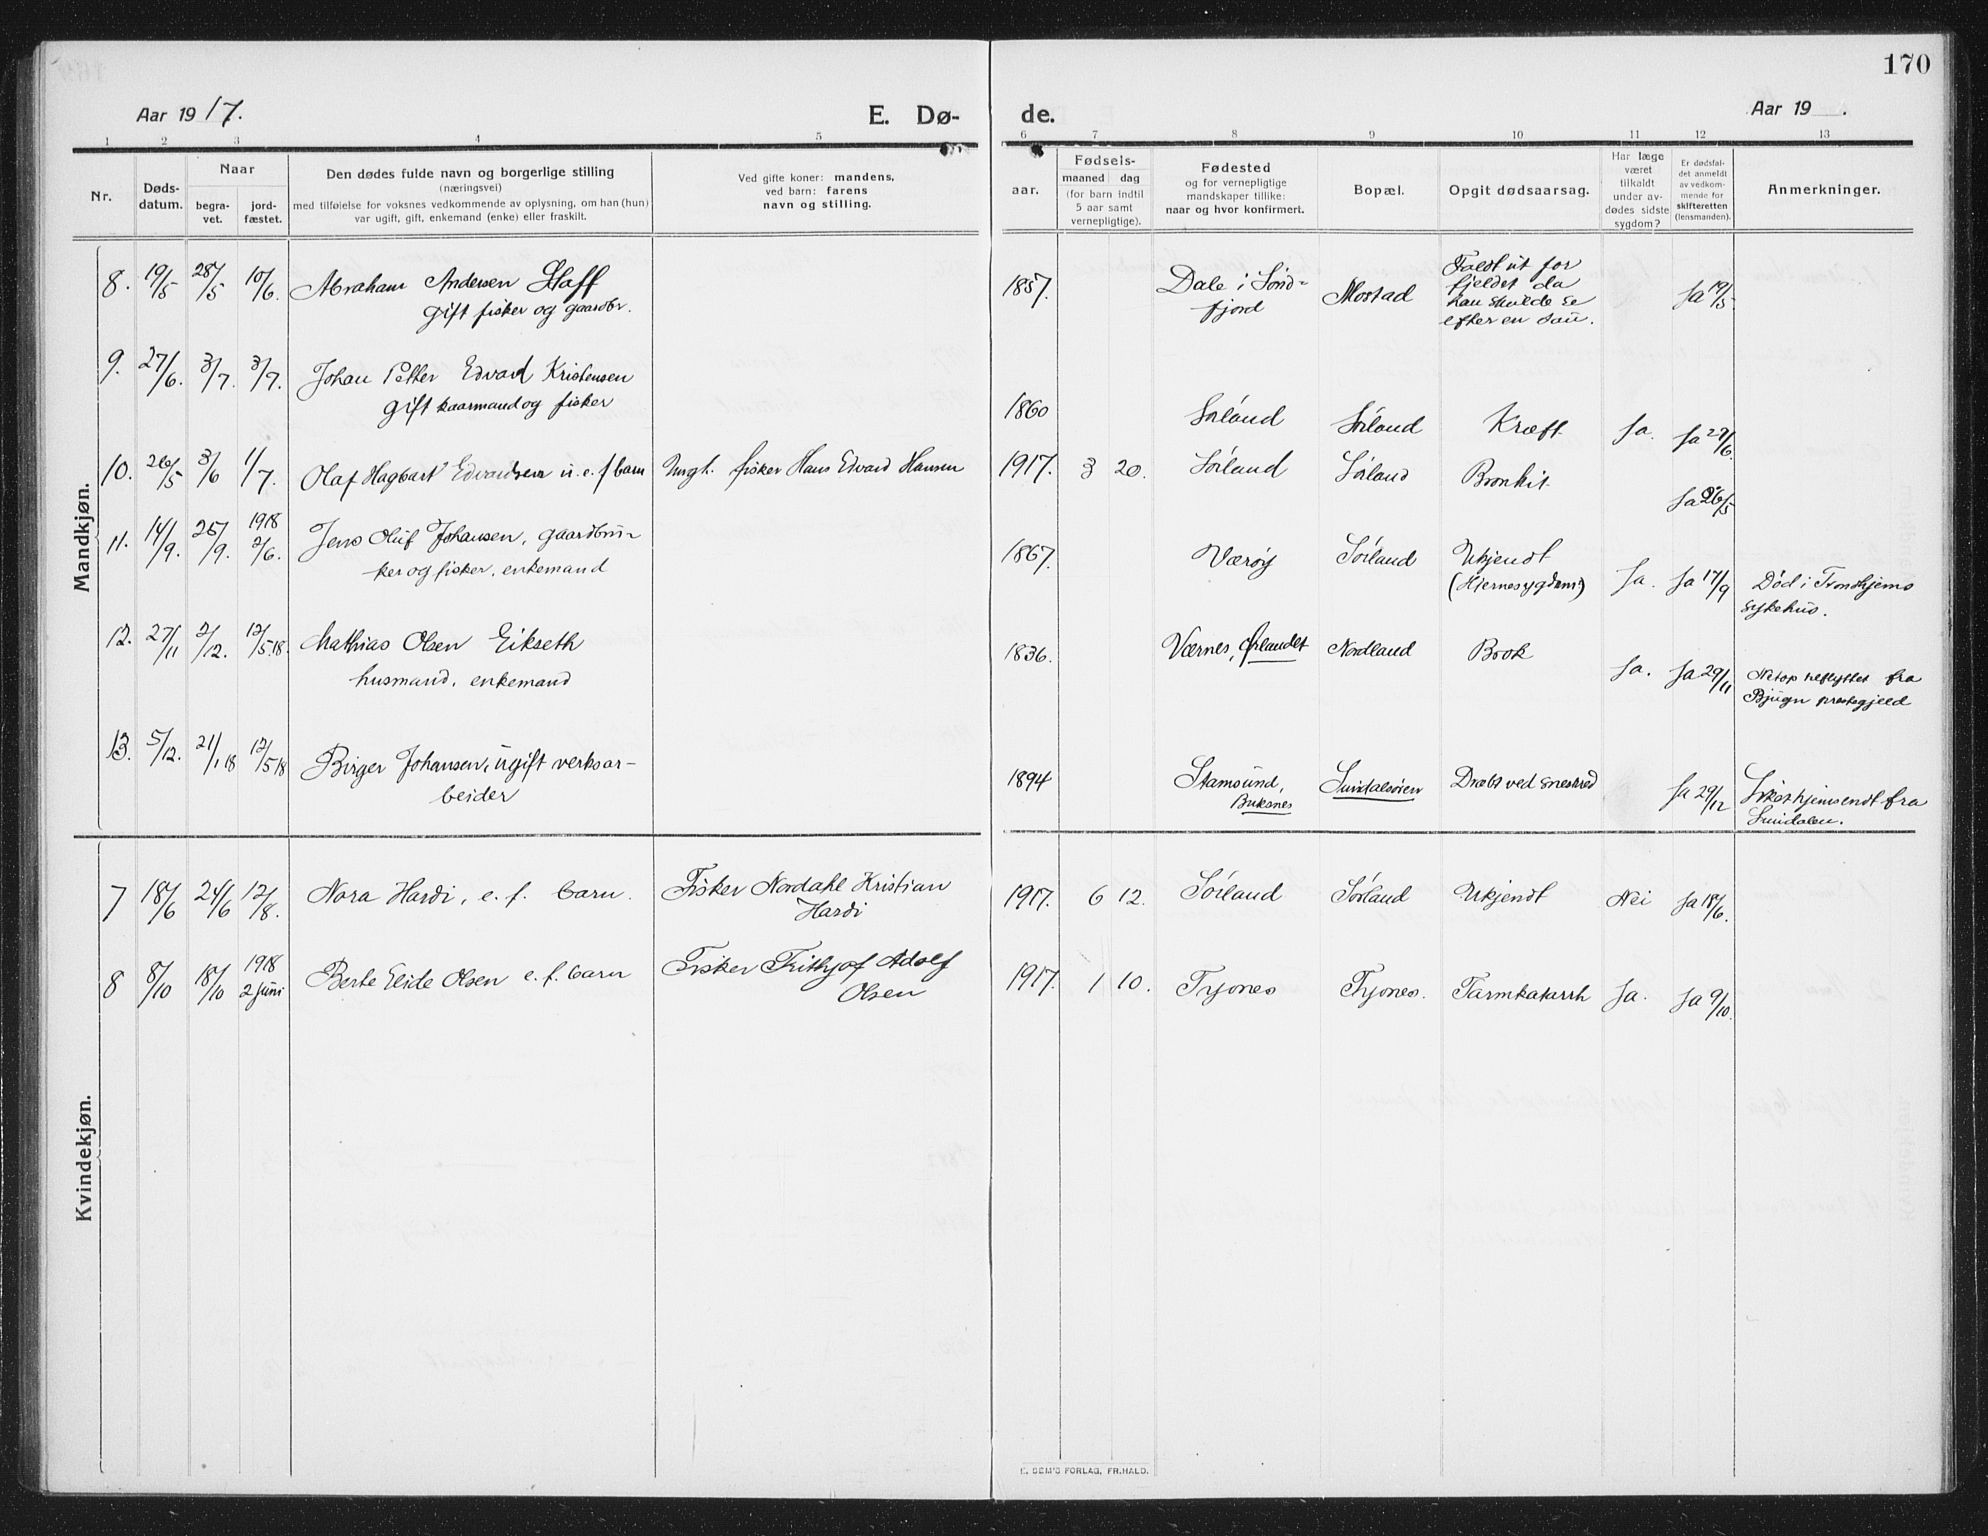 170
Aar 1917.
E. Dø-
de.
Aar 19 .
1 2 3 4 5 6 7 8 9 10 11 12 13
Nr.
Døds-
datum.
Naar
begra-
vet.
jord-
fæstet.
Den dødes fulde navn og borgerlige stilling
(næringsvei)
med tilføielse for voksnes vedkommende av oplysning, om han (hun)
var ugift, gift, enkemand (enke) eller fraskilt.
Ved gifte koner: mandens,
ved barn: farens
navn og stilling.
Fødsels-
aar. maaned dag
(for barn indtil
5 aar samt
vernepligtige).
Fødested
og for vernepligtige
mandskaper tillike:
naar og hvor konfirmert.
Bopæl.
Opgit dødsaarsag.
Har læge
været
tilkaldt
under av-
dødes sidste
sygdom?
Er dødsfal-
det anmeldt
av vedkom-
mende for
skifteretten
(lensmanden).
Anmerkninger.
Mandkjøn.
8. 19/5 28/5 10/6. Abraham Andersen Staff
gift fisker og gaardbr.
1857. Dale i Sønd-
fjord
Mostad
Faldt ut for
fjeldet da
han skulde se
efter en sau.
Ja 19/5
9. 27/6. 3/7. 3/7. Johan Petter Edvard Kristensen
gift kaarmand og fisker
1860 Sørland Sørland Kræft Ja. Ja 27/6.
10. 26/5 3/6 1/7. Olaf Hagbart Edvardsen u. e. f barn Ungk. fisker Hans Edvard Hansen
1917. 3 20. Sørland Sørland Bronkit Ja 26/5
11. 14/9. 25/9. 1918 2/6. Jens Oluf Johansen, gaardbru-
ker og fisker, enkemand
1867. Værøy Sørland Ukjendt
(Hjernesygdom?)
Ja. Ja 17/9
Død i Trondhjems
sykehus.
12. 27/11 2/12. 12/5.18. Mathias Olsen Eikseth
husmand, enkemand
1836. Værnes, Ørlandet Nordland Brok Ja. Ja 29/11
Netop tilflyttet fra
Bjugn prestegjeld
13. 5/12. 21/1 18 12/5 18 Birger Johansen, ugift verksar-
beider
1894 Stamsund,
Buksnes
Sundalsøren Dræbt ved sneskred Ja 29/12
Liket hjemsendt fra
Sundalen.
Kvindekjøn.
7 18/6 24/6 12/8. Nora Hardi, e. f. barn. Fisker Nordahl Kristian
Hardi
1917. 6 12. Sørland Sørland Ukjendt Nei Ja 18/6.
8 8/10 18/10 1918 2 juni Berte Elide Olsen e. f. barn Fisker Frithjof Adolf
Olsen
1917. 1 10. Tyvnes Tyvnes. Tarmkatarrh Ja. Ja 9/10.
E. SEM'S FORLAG, FR.HALD.